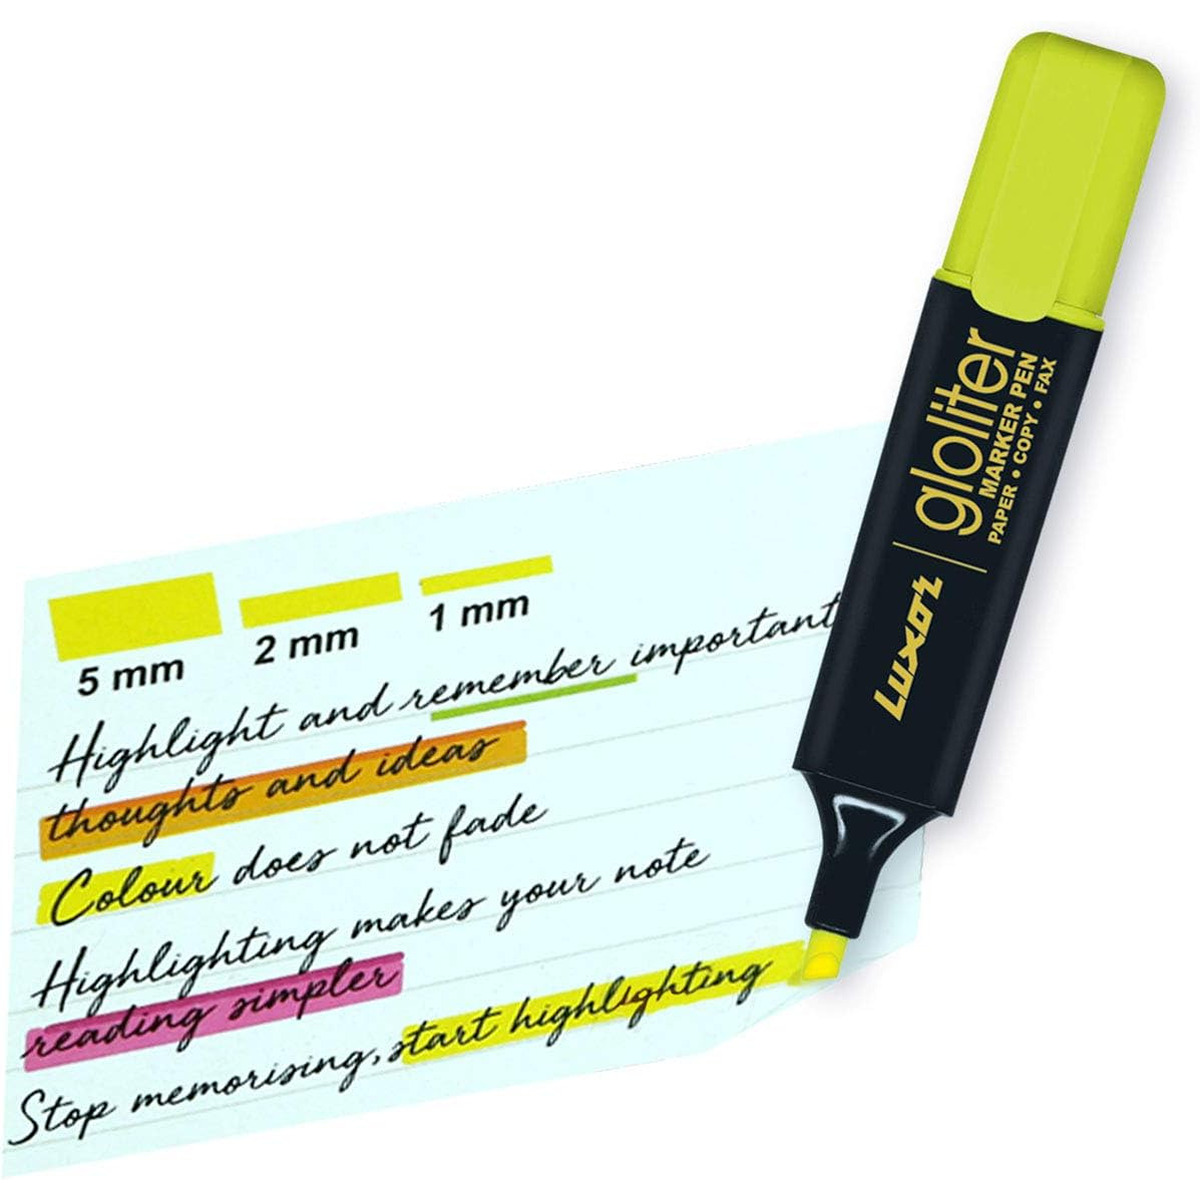 5 mm
2 mm
1 mm
Highlight and remember important
thoughts and ideas
Colour does not fade
Highlighting makes your note
reading simpler
Stop memorising, start highlighting
Luxor
gloliter
MARKER PEN
PAPER • COPY • FAX